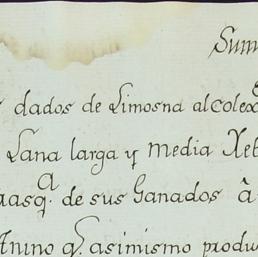 Sum
dados de Limosna al colex
Lana larga y media Xe
de sus Ganados â
q. asimismo produ